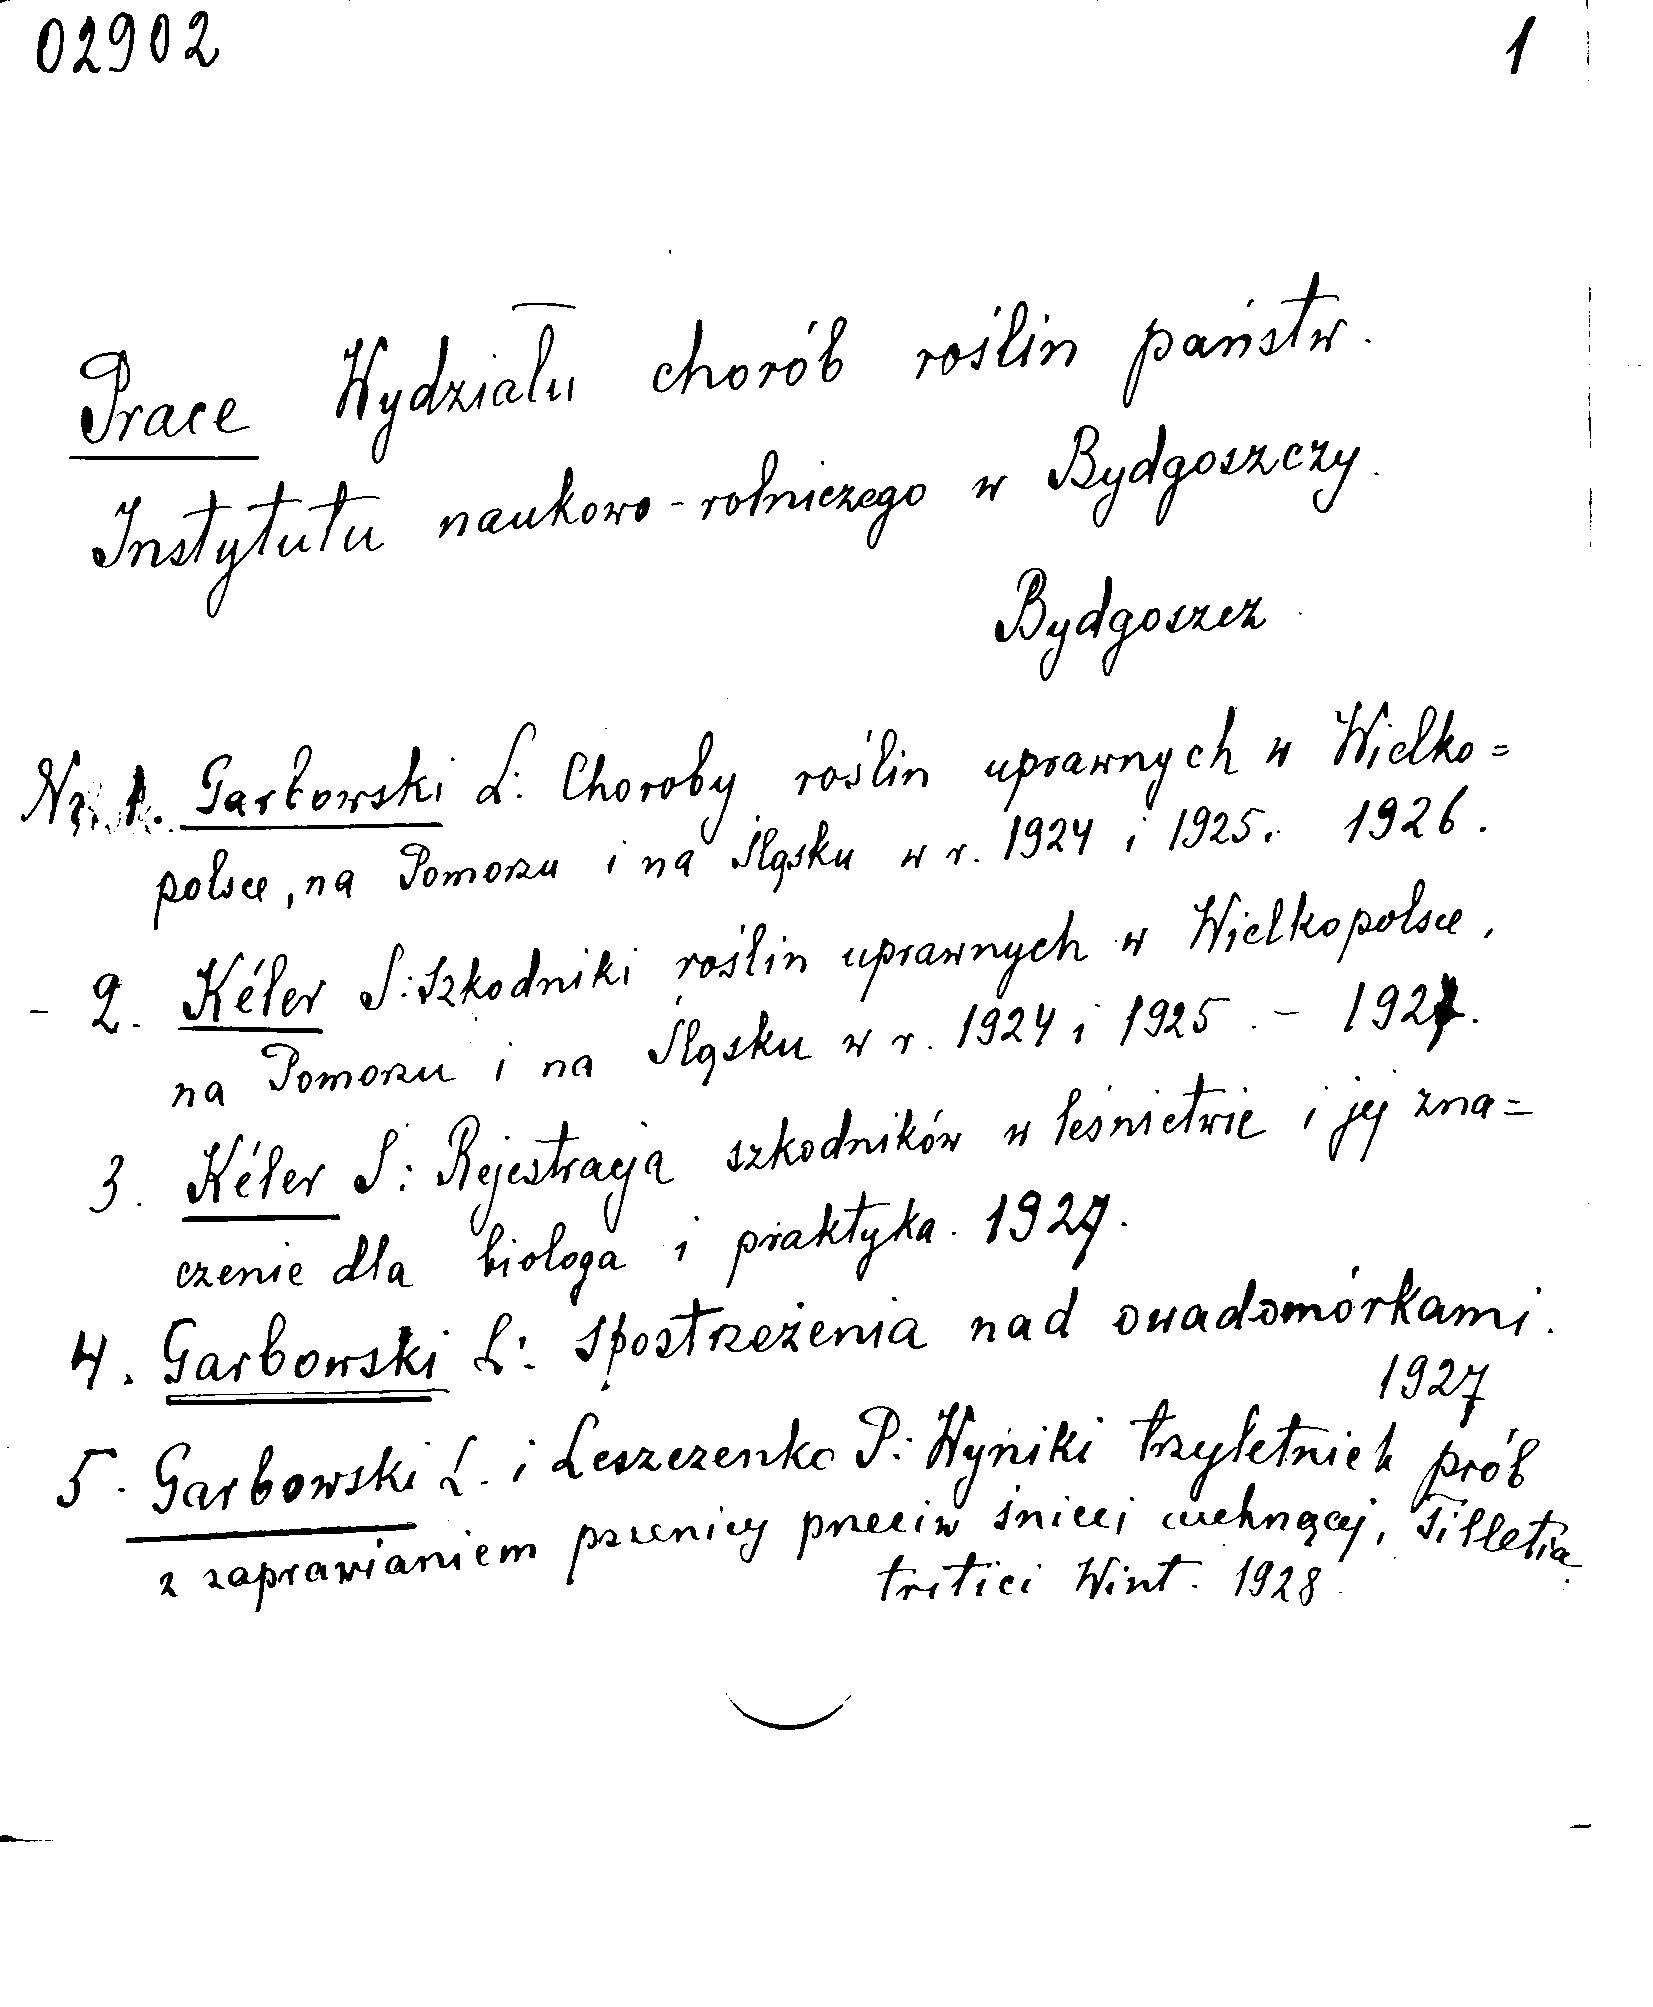 02902 1
Prace Wydziału chorób roślin państw.
Instytutu naukowo-rolniczego w Bydgoszczy.
Bydgoszcz
Nr. 1. Garbowski L: Choroby roślin uprawnych w Wielko=
polsce, na Pomorzu i na Śląsku w r. 1924 i 1925. 1926.
- 2. Kéler S: Szkodniki roślin uprawnych w Wielkopolsce,
na Pomorzu i na Śląsku w r. 1924 i 1925. - 1927.
3. Kéler S: Rejestracja szkodników w leśnictwie i jej zna=
czenie dla biologa i praktyka. 1927.
4. Garbowski L: Spostrzeżenia nad owadomórkami.
1927
5. Garbowski L. i Leszczenko P: Wyniki trzyletnich prób
z zaprawianiem pszenicy przeciw śnieci cuchnącej, Tilletia
tritici Wint. 1928